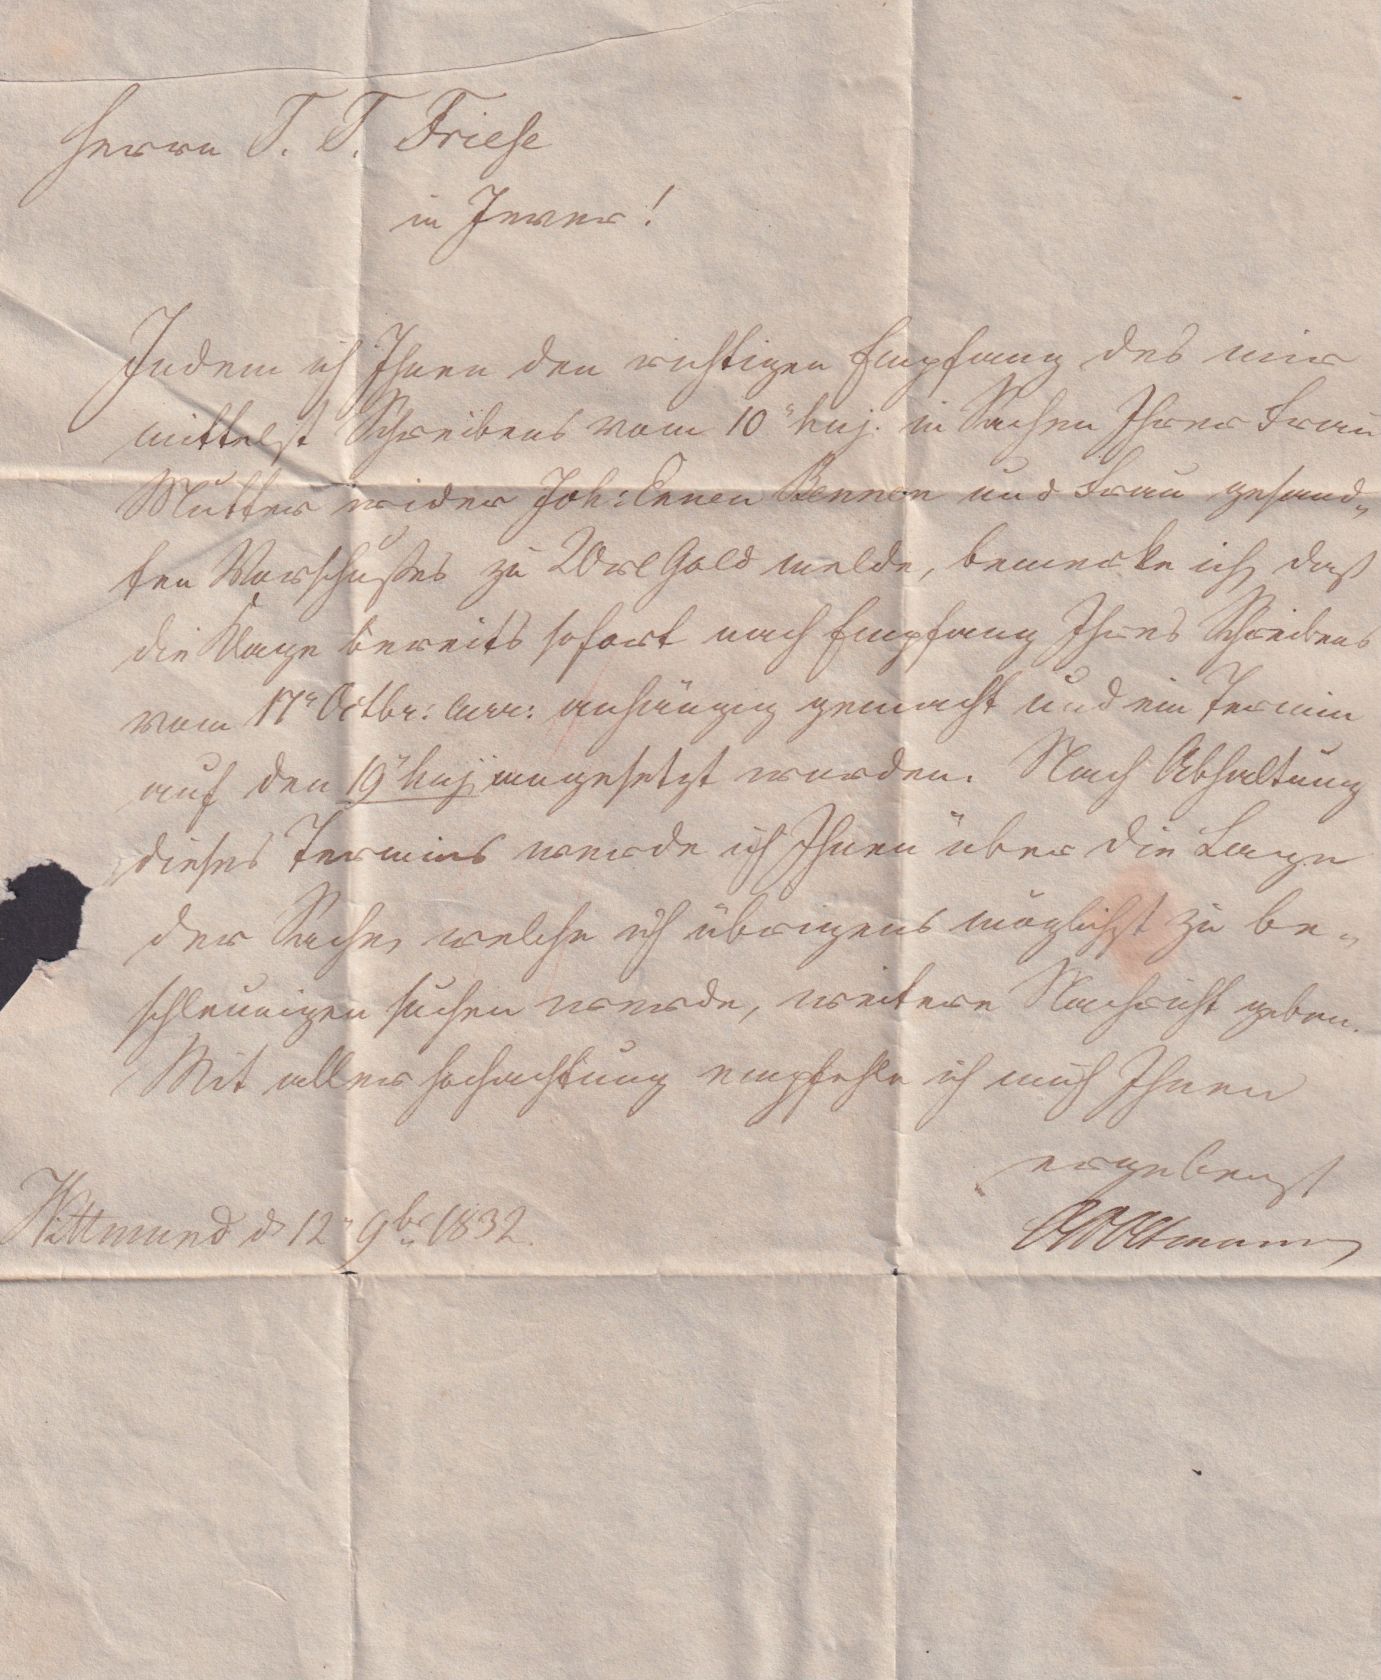 Herrn T. T. Friese
in Jever!
Indem ich Ihnen den richtigen Empfang des mir
mittelst Schreibens vom 10ⁿ huj. in Sachen Ihrer Frau
Mutter wider Joh: Ennen Bennen und Frau gesand„
ten Vorschußes zu Gold melde, bemerke ich, daß
die Klage bereits sofort nach Empfang Ihres Schreibens
vom 17ⁿ Octbr: curr: anhängig gemacht und ein Termin
auf den 19ⁿ huj. angesetzt worden. Nach Abhaltung
dieses Termins werde ich Ihnen über die Lage
der Sache, welche ich übrigens möglichst zu be„
schleunigen suchen werde, weitere Nachricht geben.
Mit aller Hochachtung empfehle ich mich Ihnen
ergebenst
Wittmund d 12ⁿ 9br 1832.